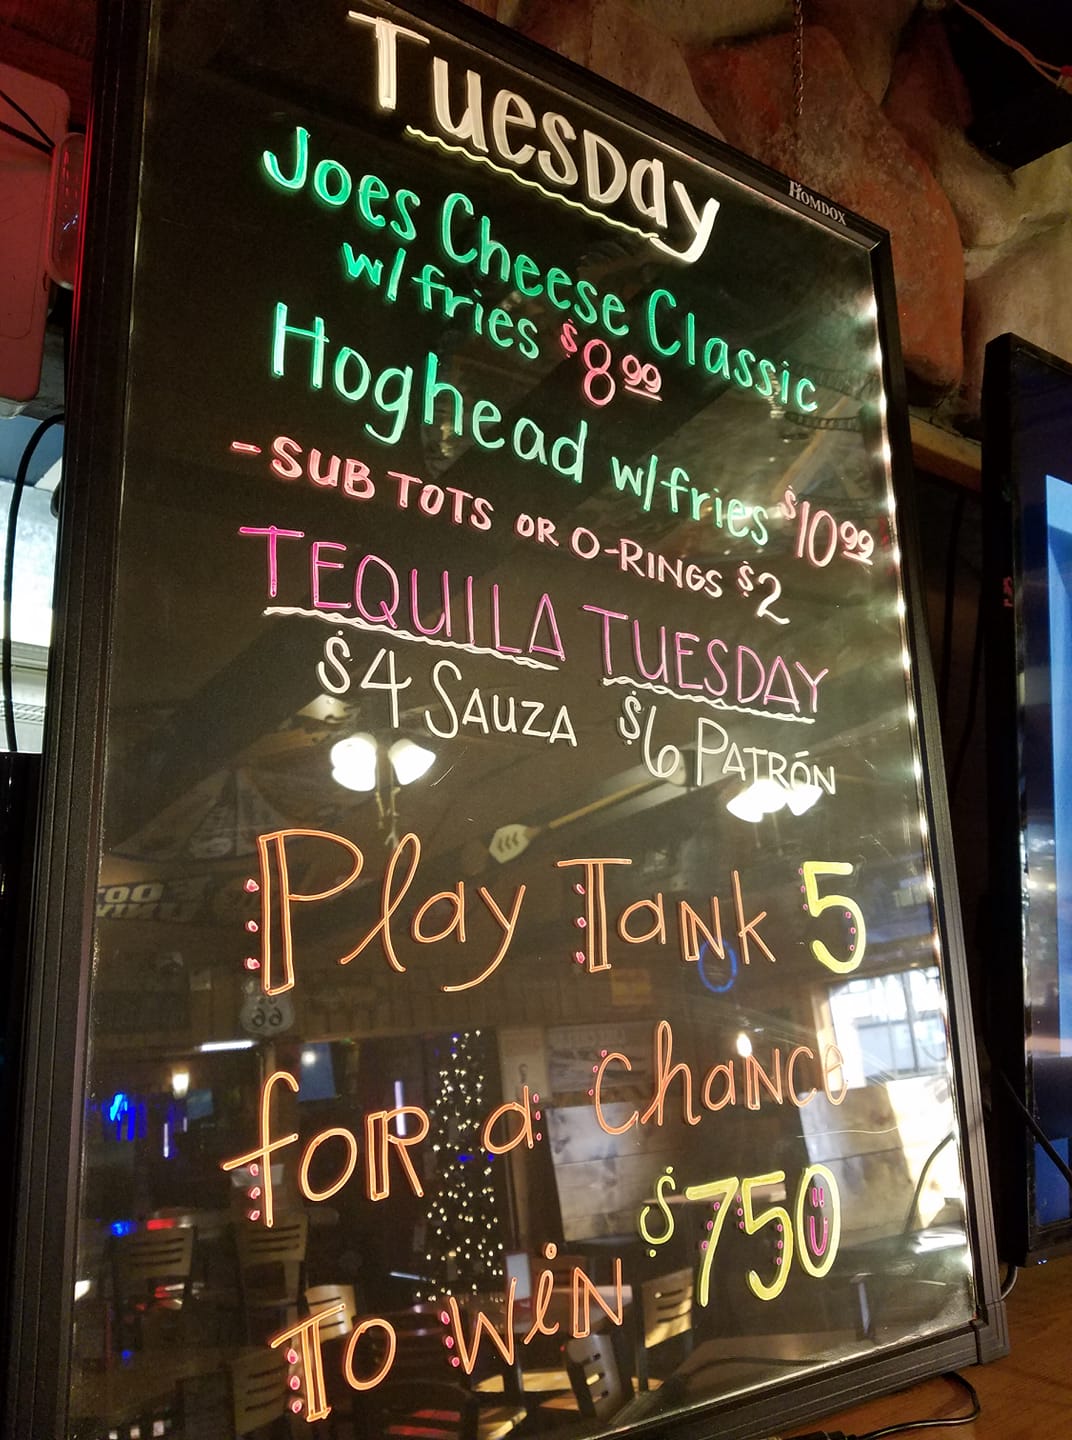 Tuesday
HOMDOX
Joes Cheese Classic
w/fries $8.99
Hoghead w/fries $10.99
-SUB TOTS OR O-RINGS $2
TEQUILA TUESDAY
$4 SAUZA $6 PATRÓN
Play Tank 5
for a chance
To win $750